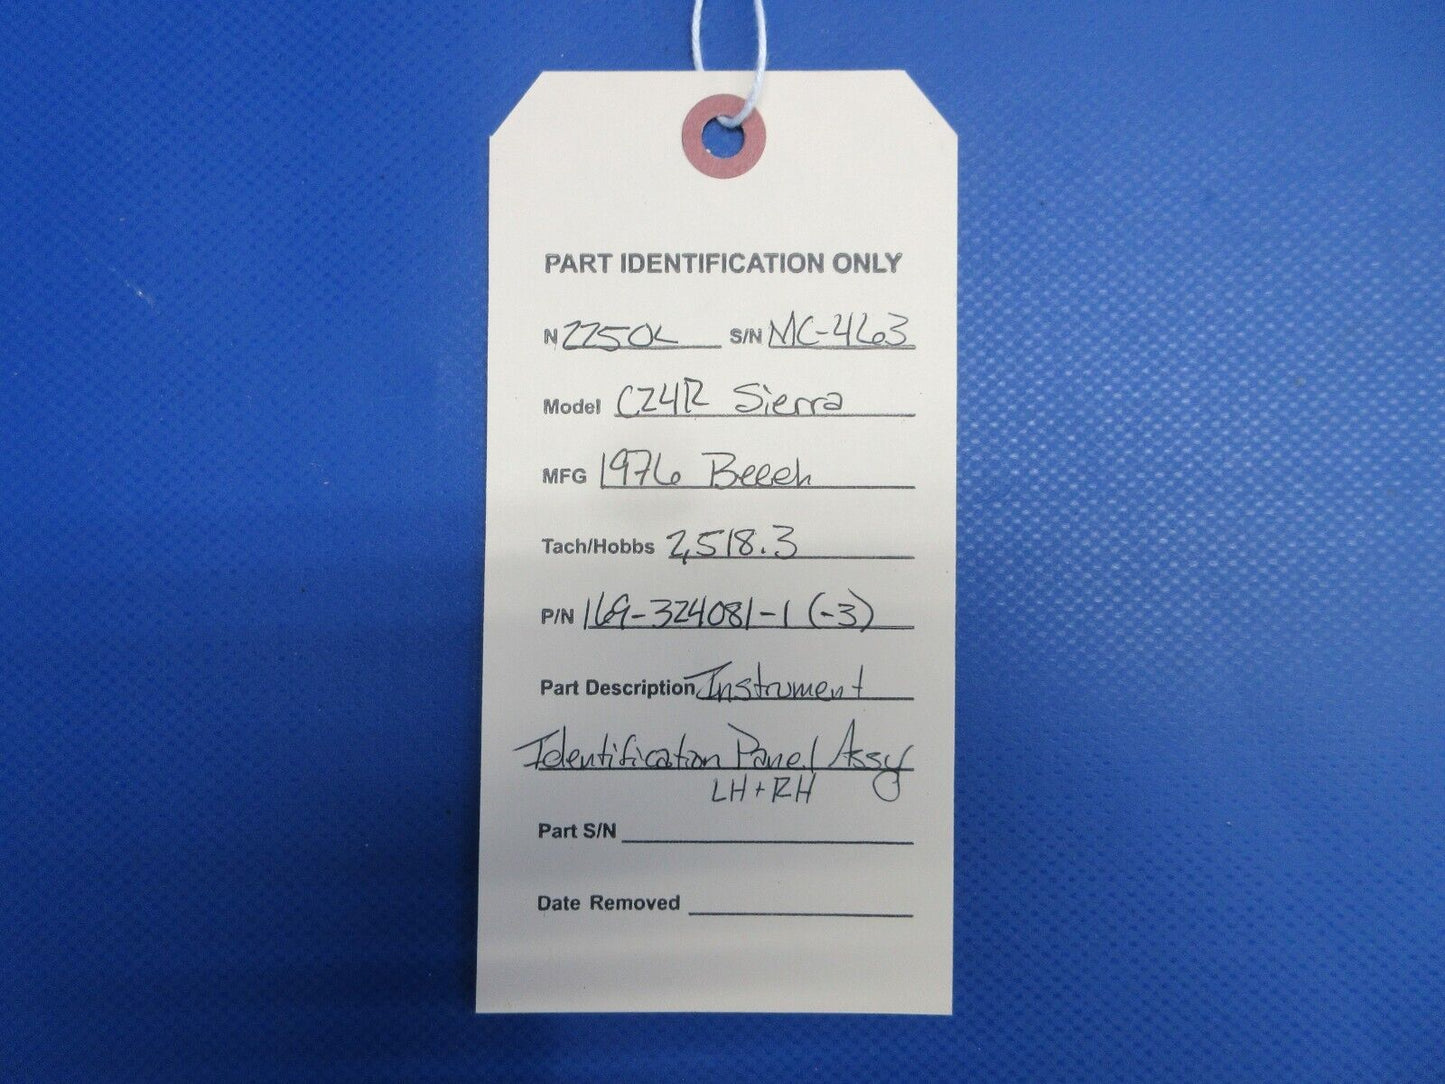 PART IDENTIFICATION ONLY
N 2250L S/N MC-463
Model C24R Sierra
MFG 1976 Beech
Tach/Hobbs 2,518.3
P/N 169-324081-1 (-3)
Part Description Instrument
Identification Panel Assy
LH + RH
Part S/N
Date Removed